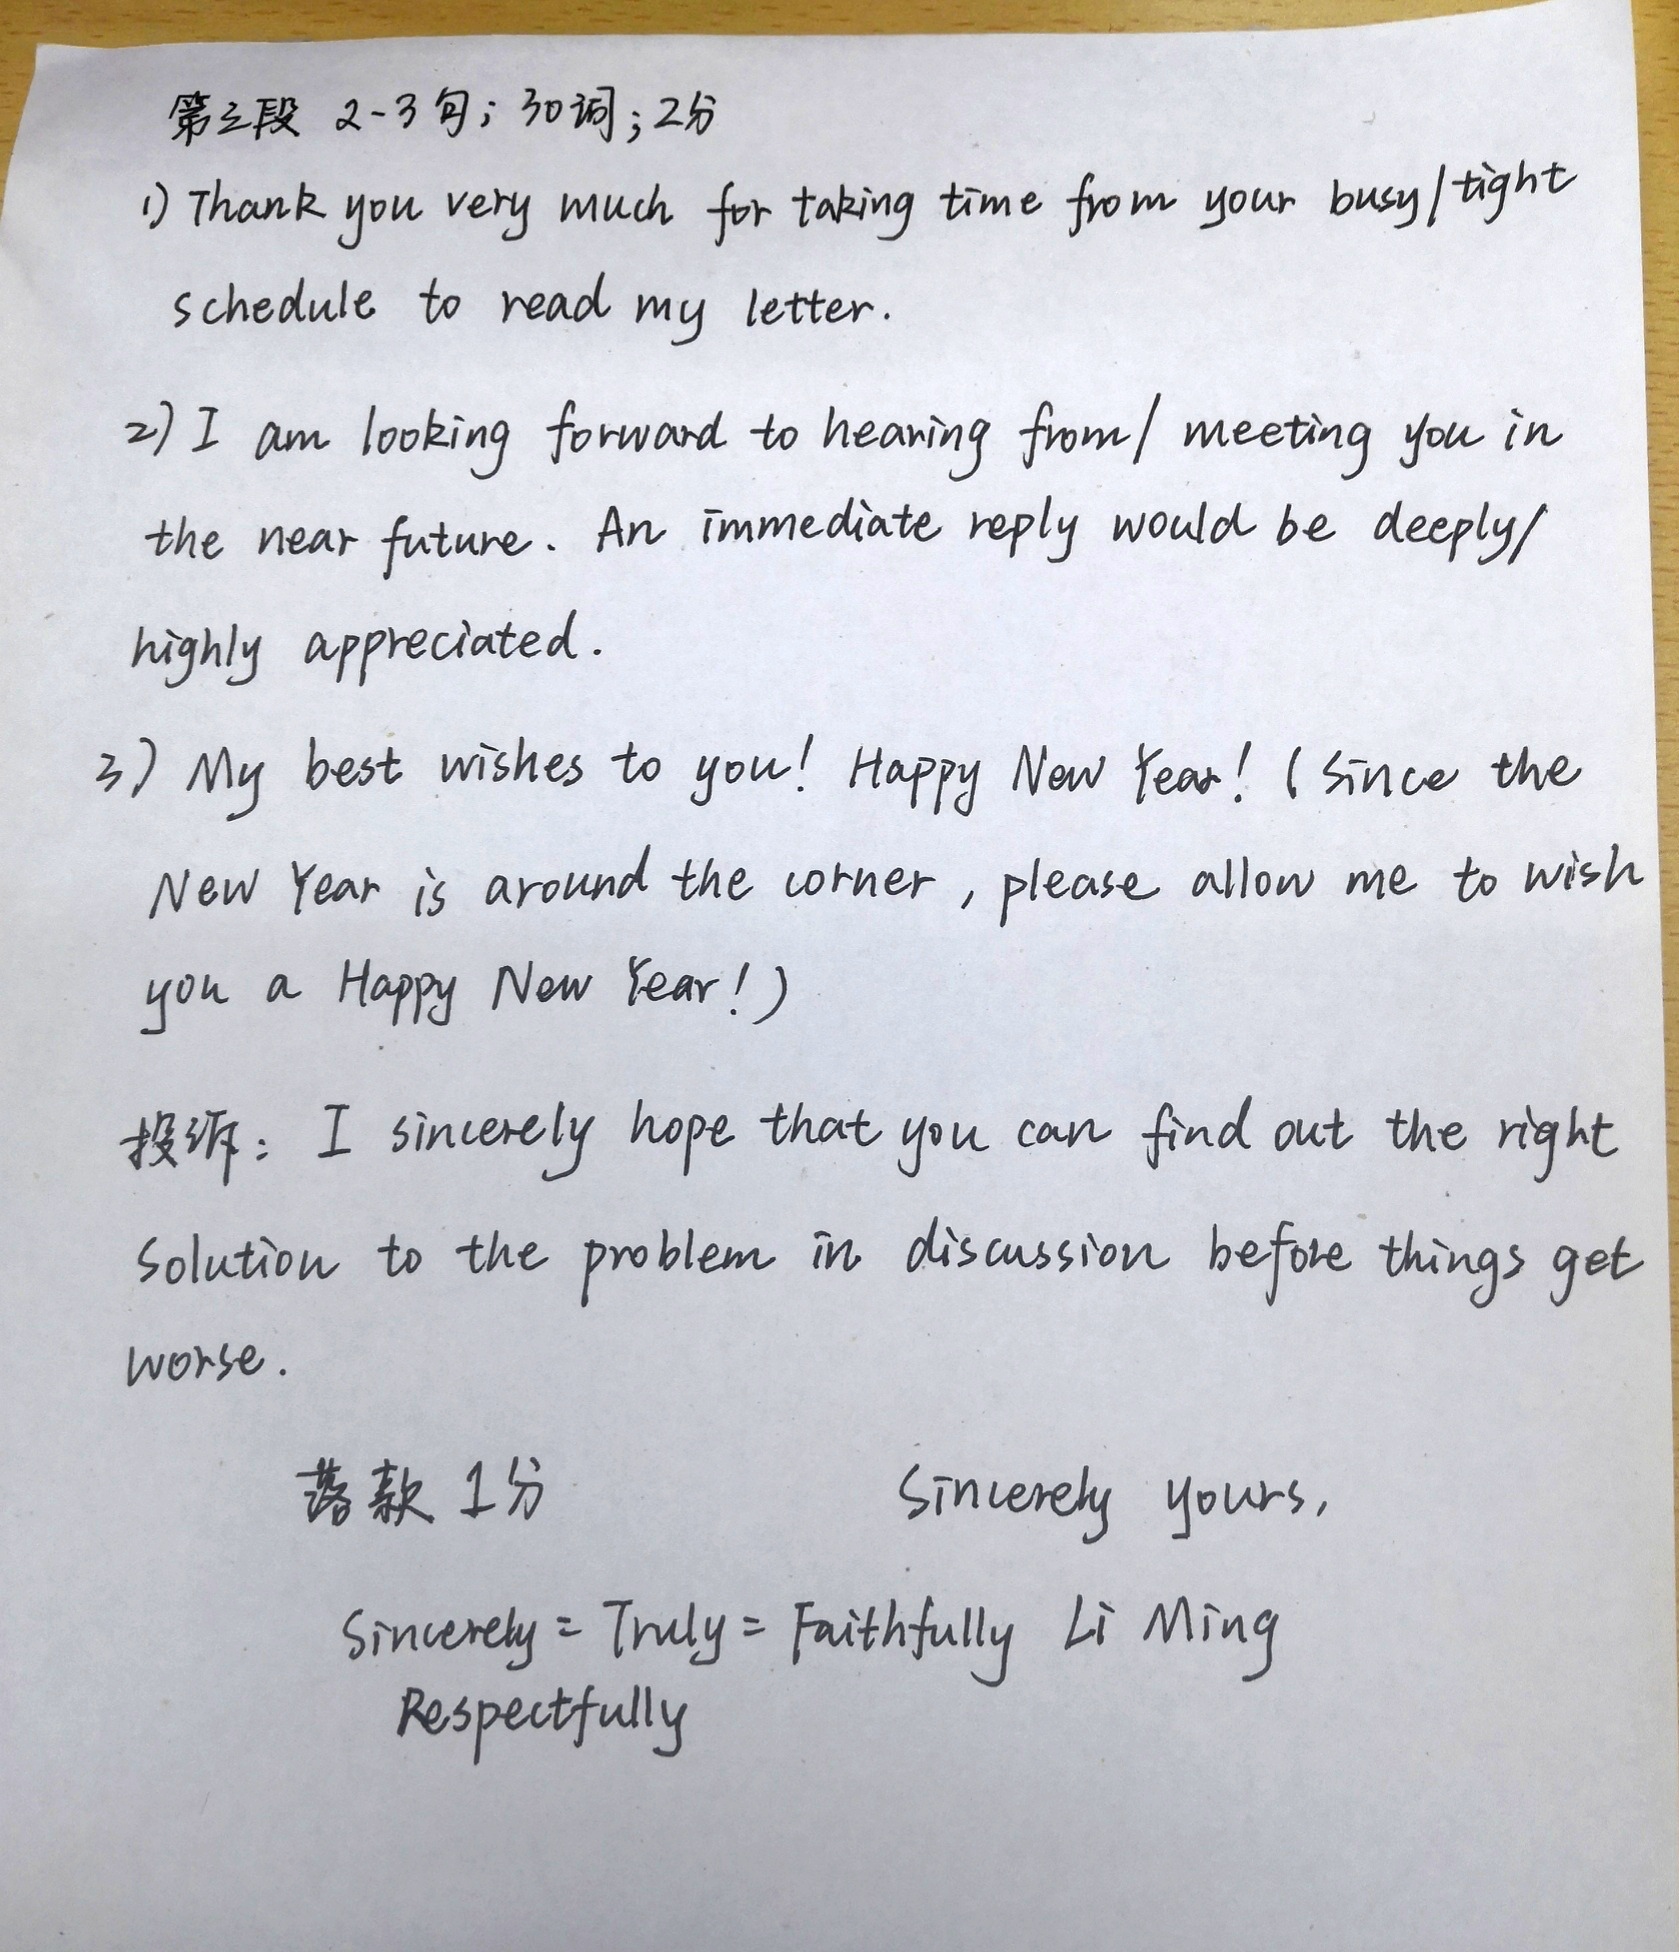 第三段 2-3句; 30词; 2分
1) Thank you very much for taking time from your busy/tight
schedule to read my letter.
2) I am looking forward to hearing from/ meeting you in
the near future. An immediate reply would be deeply/
highly appreciated.
3) My best wishes to you! Happy New Year! (Since the
New Year is around the corner, please allow me to wish
you a Happy New Year!)
投诉: I sincerely hope that you can find out the right
solution to the problem in discussion before things get
worse.
落款 1分 Sincerely yours,
Sincerely = Truly = Faithfully Li Ming
Respectfully